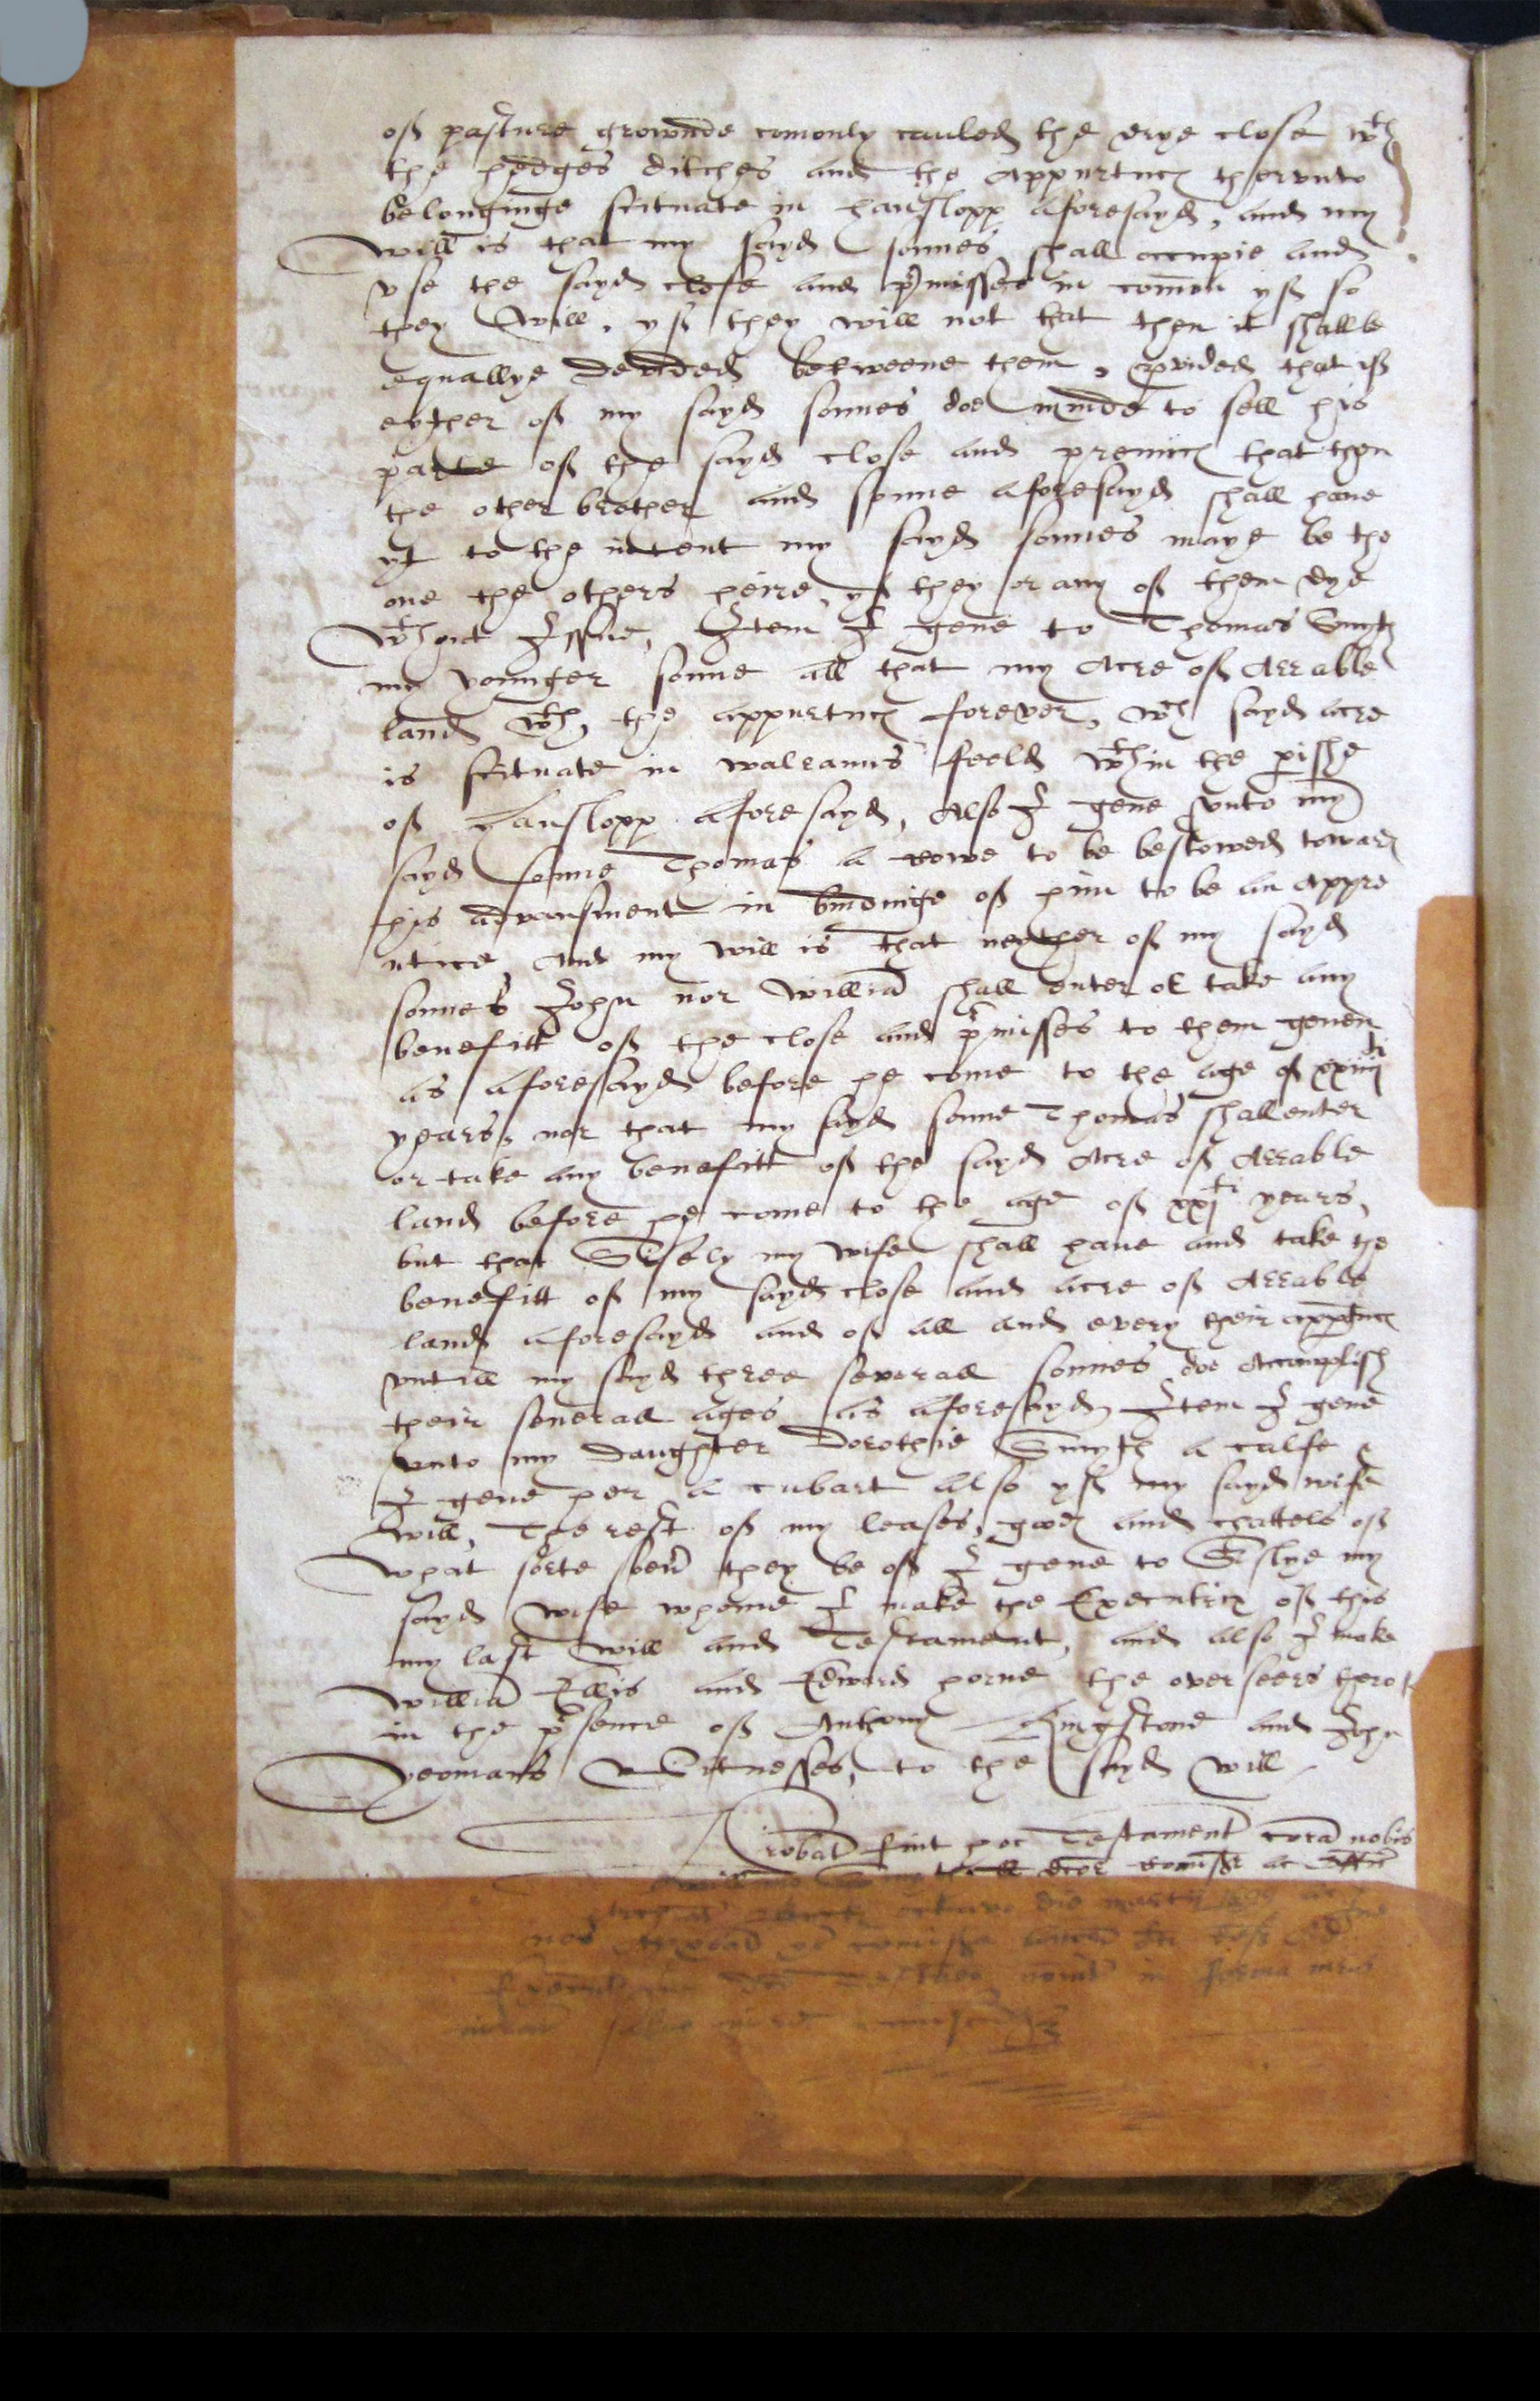 off pasture grownde comonly cauled the drye close wth
the hedges ditches and the appurtnc thervnto
belonginge scituate in hanslopp aforesayd, and my
will is that my sayd sonnes shall occupie and
vse the sayd close and pmisses in comon yff so
they will, yff they will not that then it shalbe
equallye devided betweene them, pvided that iff
eyther off my sayd sonnes doe minde to sell his
parte off the sayd close and premiss that then
the other brother and sonne aforesayd shall haue
yt to the intent my sayd sonnes maye be the
one the others heire, yff they or any off them dye
wthout Issue, Item I geue to Thomas Smyth
my yonnger sonne all that my Acre off Arrable
land wth the appurtnc forever, wch sayd acre
is scituate in walranns feeld wthin the pishe
off hanslopp aforesayd, Also I geue vnto my
sayd sonne Thomas a cowe to be bestowed toward
his advansment in bindinige off him to be an Appre
ntice And my will is that neyther off my sayd
sonnes John nor Willia shall enter or take any
benefitt off the close and pmisses to them geuen
as aforesayd before he come to the age off xxiiijti
yeares, nor that my sayd sonne Thomas shall enter
or take any benefitt off the sayd Acre off Arrable
land before he come to the age off xxjti yeares,
but that Sisely my wife shall haue and take the
benefitt off my sayd close and acre off Arrable
land aforesayd and off all and every their apptnc
vntill my sayd three severall sonnes doe Accomplish
their seuerall ages as aforesayd, Item I geue
vnto my Daughter Dorothie Smyth a calfe &
I geue her a cubart also yff my sayd wife
will, The rest off my leases, goods and chattels off
what sorte soeu they be off I geue to Sislye my
sayd wife whome I make the Executrix off this
my last will and Testament, and also I make
Willia Ellis and Edward horne the overseers therof
in the psence off Anthony Kingstone and John
yeomans Witnesses, to the sayd will
Probat fuit hoc Testament cora nobis
octavo die
in forma iuris
salvo iure cuiuscuq